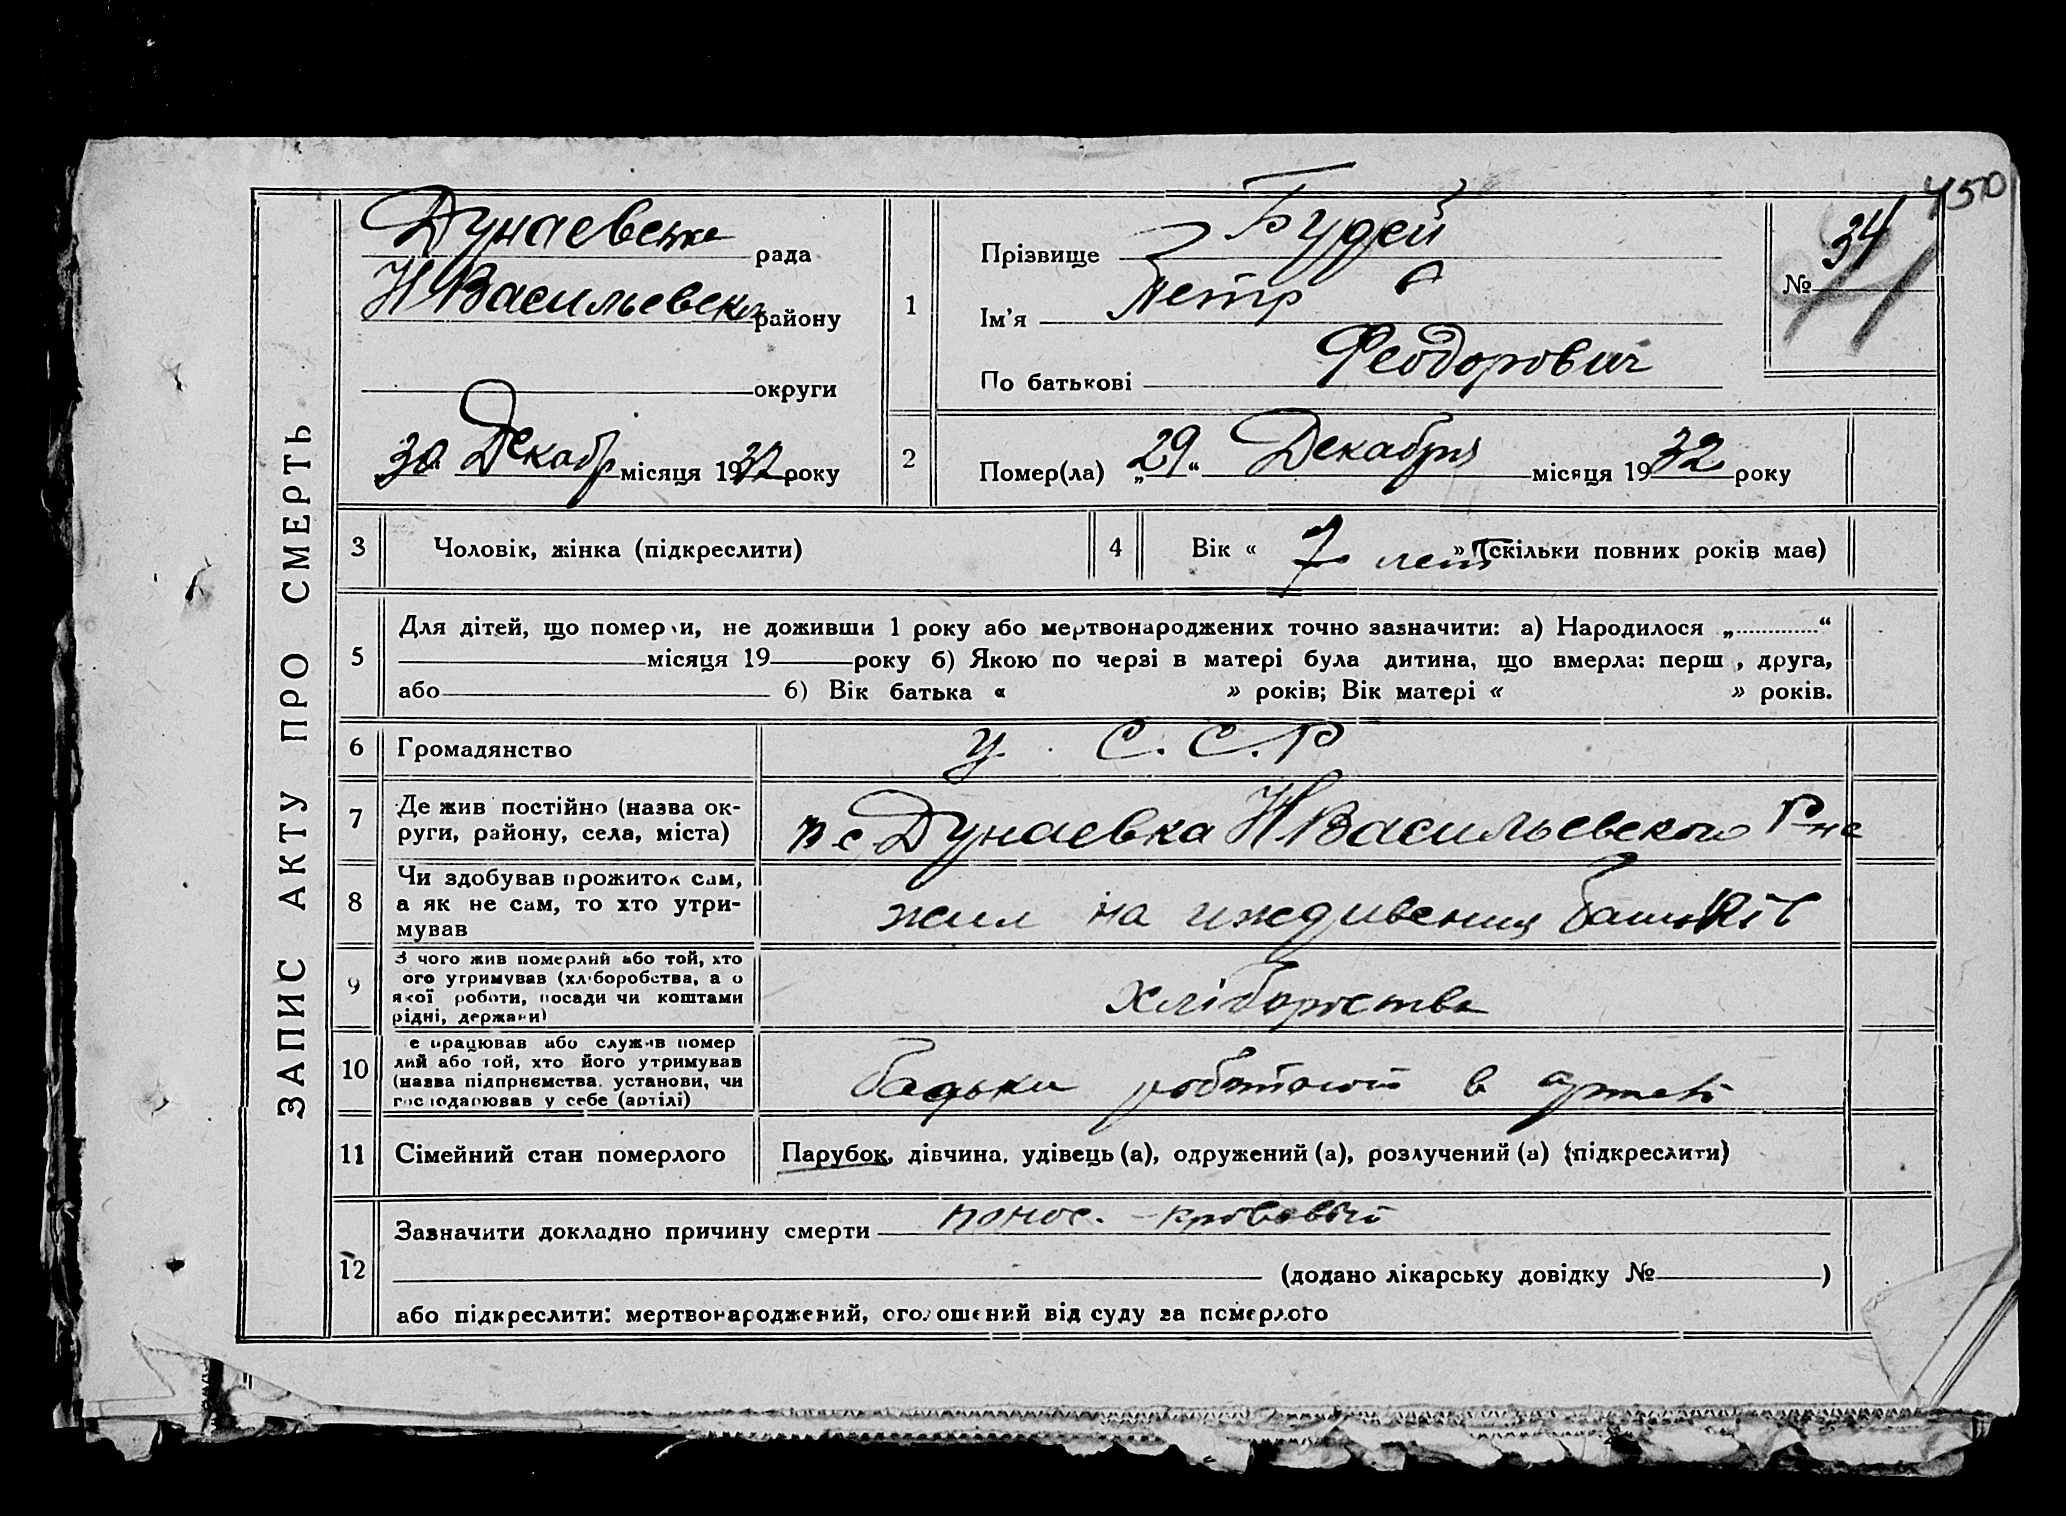 450
ЗАПИС АКТУ ПРО СМЕРТЬ
Дунаевська рада
Н Васильевск району
округи
30 Декабр місяця 1932 року
1
Прізвище Будей
Ім'я Петр
По батькові Феодорович
№ 34
2
Помер(ла) „29“ Декабря місяця 1932 року
3
Чоловік, жінка (підкреслити)
4
Вік « 7 лет » (скільки повних років мав)
5
Для дітей, що померли, не доживши 1 року або мертвонароджених точно зазначити: а) Народилося „............“
місяця 19 року б) Якою по черзі в матері була дитина, що вмерла: перш , друга,
або б) Вік батька « » років; Вік матері « » років.
6
Громадянство
У. С. С. Р
7
Де жив постійно (назва ок-
руги, району, села, міста)
п с Дунаевка Н Васильевского Р-на
8
Чи здобував прожиток сам,
а як не сам, то хто утри-
мував
жил на иждивения батьків
9
З чого жив померлий або той, хто
ого утримував (хліборобства, а о
якої роботи, посади чи коштами
рідні, держави)
хліборобства
10
е працював або служив помер
лий або той, хто його утримував
(назва підприємства, установи, чи
господарював у себе (артілі)
в артелі
11
Сімейний стан померлого
Парубок, дівчина, удівець (а), одружений (а), розлучений (а) (підкреслити)
12
Зазначити докладно причину смерти понос. - кровавый
(додано лікарську довідку № )
або підкреслити: мертвонароджений, оголошений від суду за померлого